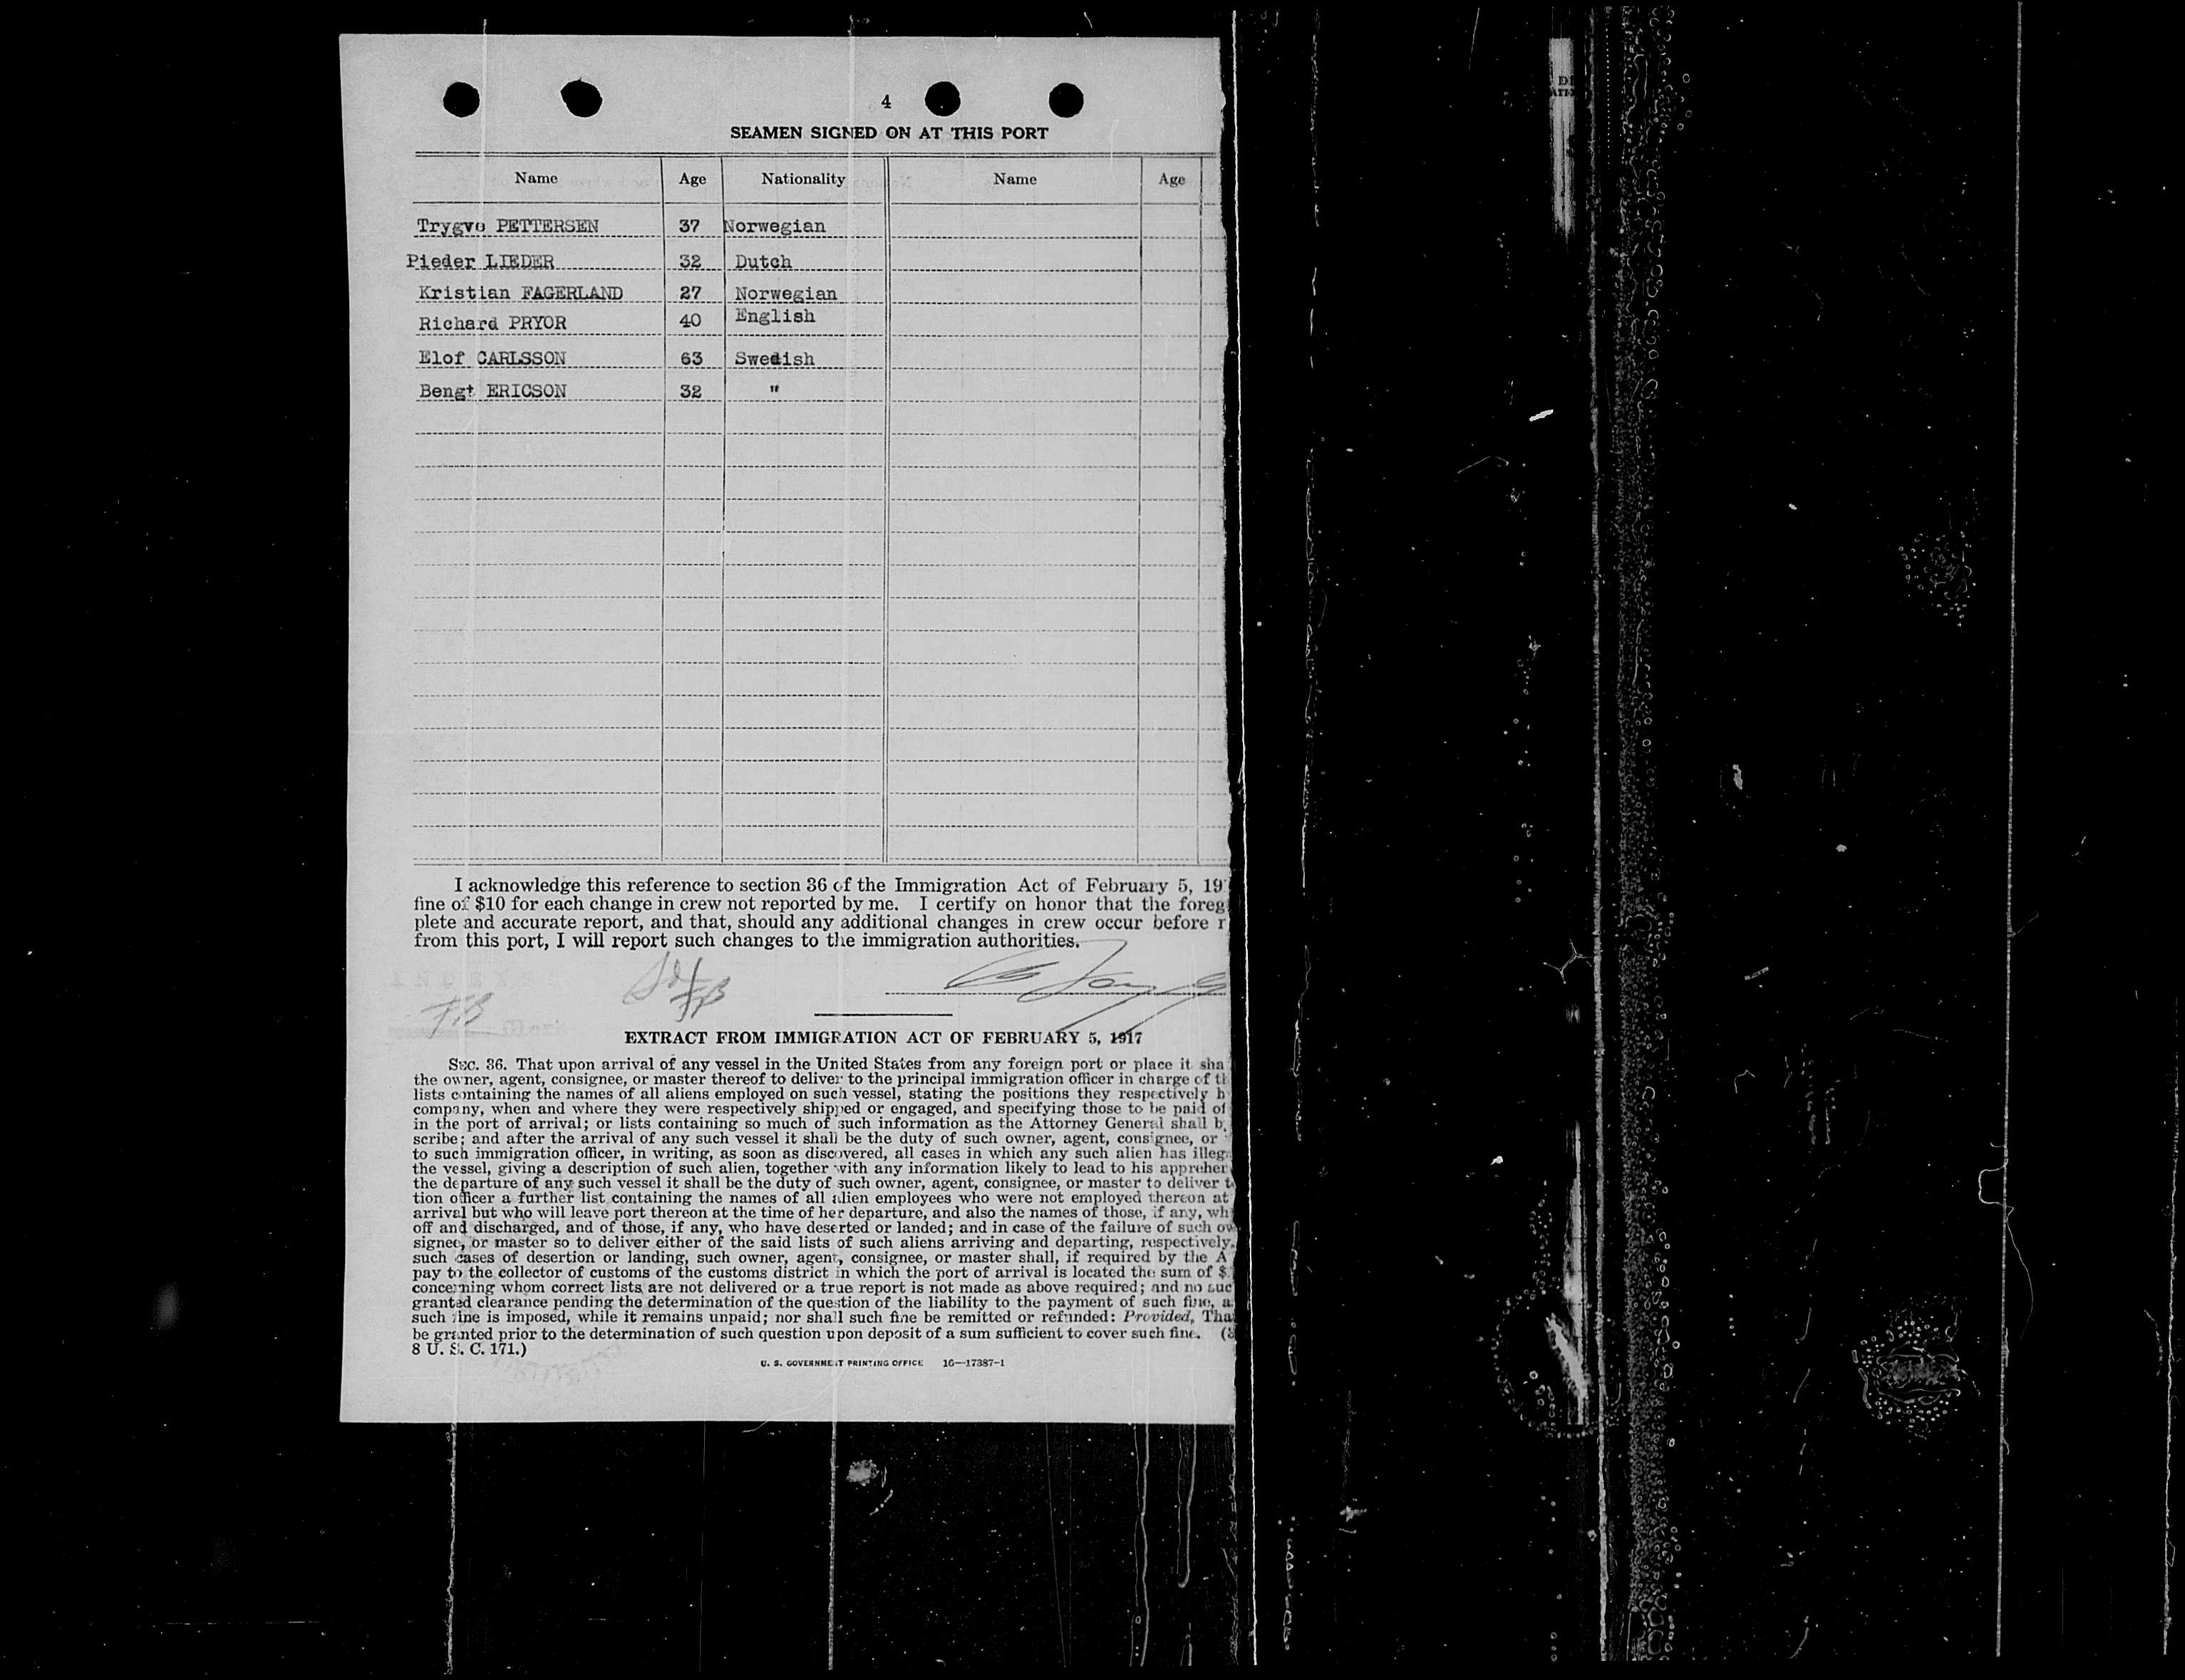 4
SEAMEN SIGNED ON AT THIS PORT
Name Age Nationality Name Age
Trygve PETTERSEN 37 Norwegian
Pieder LIEDER 32 Dutch
Kristian FAGERLAND 27 Norwegian
Richard PRYOR 40 English
Elof CARLSSON 63 Swedish
Bengt ERICSON 32 "
I acknowledge this reference to section 36 of the Immigration Act of February 5, 19
fine of $10 for each change in crew not reported by me. I certify on honor that the foreg
plete and accurate report, and that, should any additional changes in crew occur before r
from this port, I will report such changes to the immigration authorities.
EXTRACT FROM IMMIGRATION ACT OF FEBRUARY 5, 1917
SEC. 36. That upon arrival of any vessel in the United States from any foreign port or place it sha
the owner, agent, consignee, or master thereof to deliver to the principal immigration officer in charge of th
lists containing the names of all aliens employed on such vessel, stating the positions they respectively h
company, when and where they were respectively shipped or engaged, and specifying those to be paid of
in the port of arrival; or lists containing so much of such information as the Attorney General shall b
scribe; and after the arrival of any such vessel it shall be the duty of such owner, agent, consignee, or
to such immigration officer, in writing, as soon as discovered, all cases in which any such alien has illeg
the vessel, giving a description of such alien, together with any information likely to lead to his appreher
the departure of any such vessel it shall be the duty of such owner, agent, consignee, or master to deliver t
tion officer a further list containing the names of all alien employees who were not employed thereon at
arrival but who will leave port thereon at the time of her departure, and also the names of those, if any, wh
off and discharged, and of those, if any, who have deserted or landed; and in case of the failure of such ow
signee, or master so to deliver either of the said lists of such aliens arriving and departing, respectively,
such cases of desertion or landing, such owner, agent, consignee, or master shall, if required by the A
pay to the collector of customs of the customs district in which the port of arrival is located the sum of $
concerning whom correct lists are not delivered or a true report is not made as above required; and no suc
granted clearance pending the determination of the question of the liability to the payment of such fine, a
such fine is imposed, while it remains unpaid; nor shall such fine be remitted or refunded: Provided, Tha
be granted prior to the determination of such question upon deposit of a sum sufficient to cover such fine. (
8 U. S. C. 171.)
U. S. GOVERNMENT PRINTING OFFICE 16—17387-1